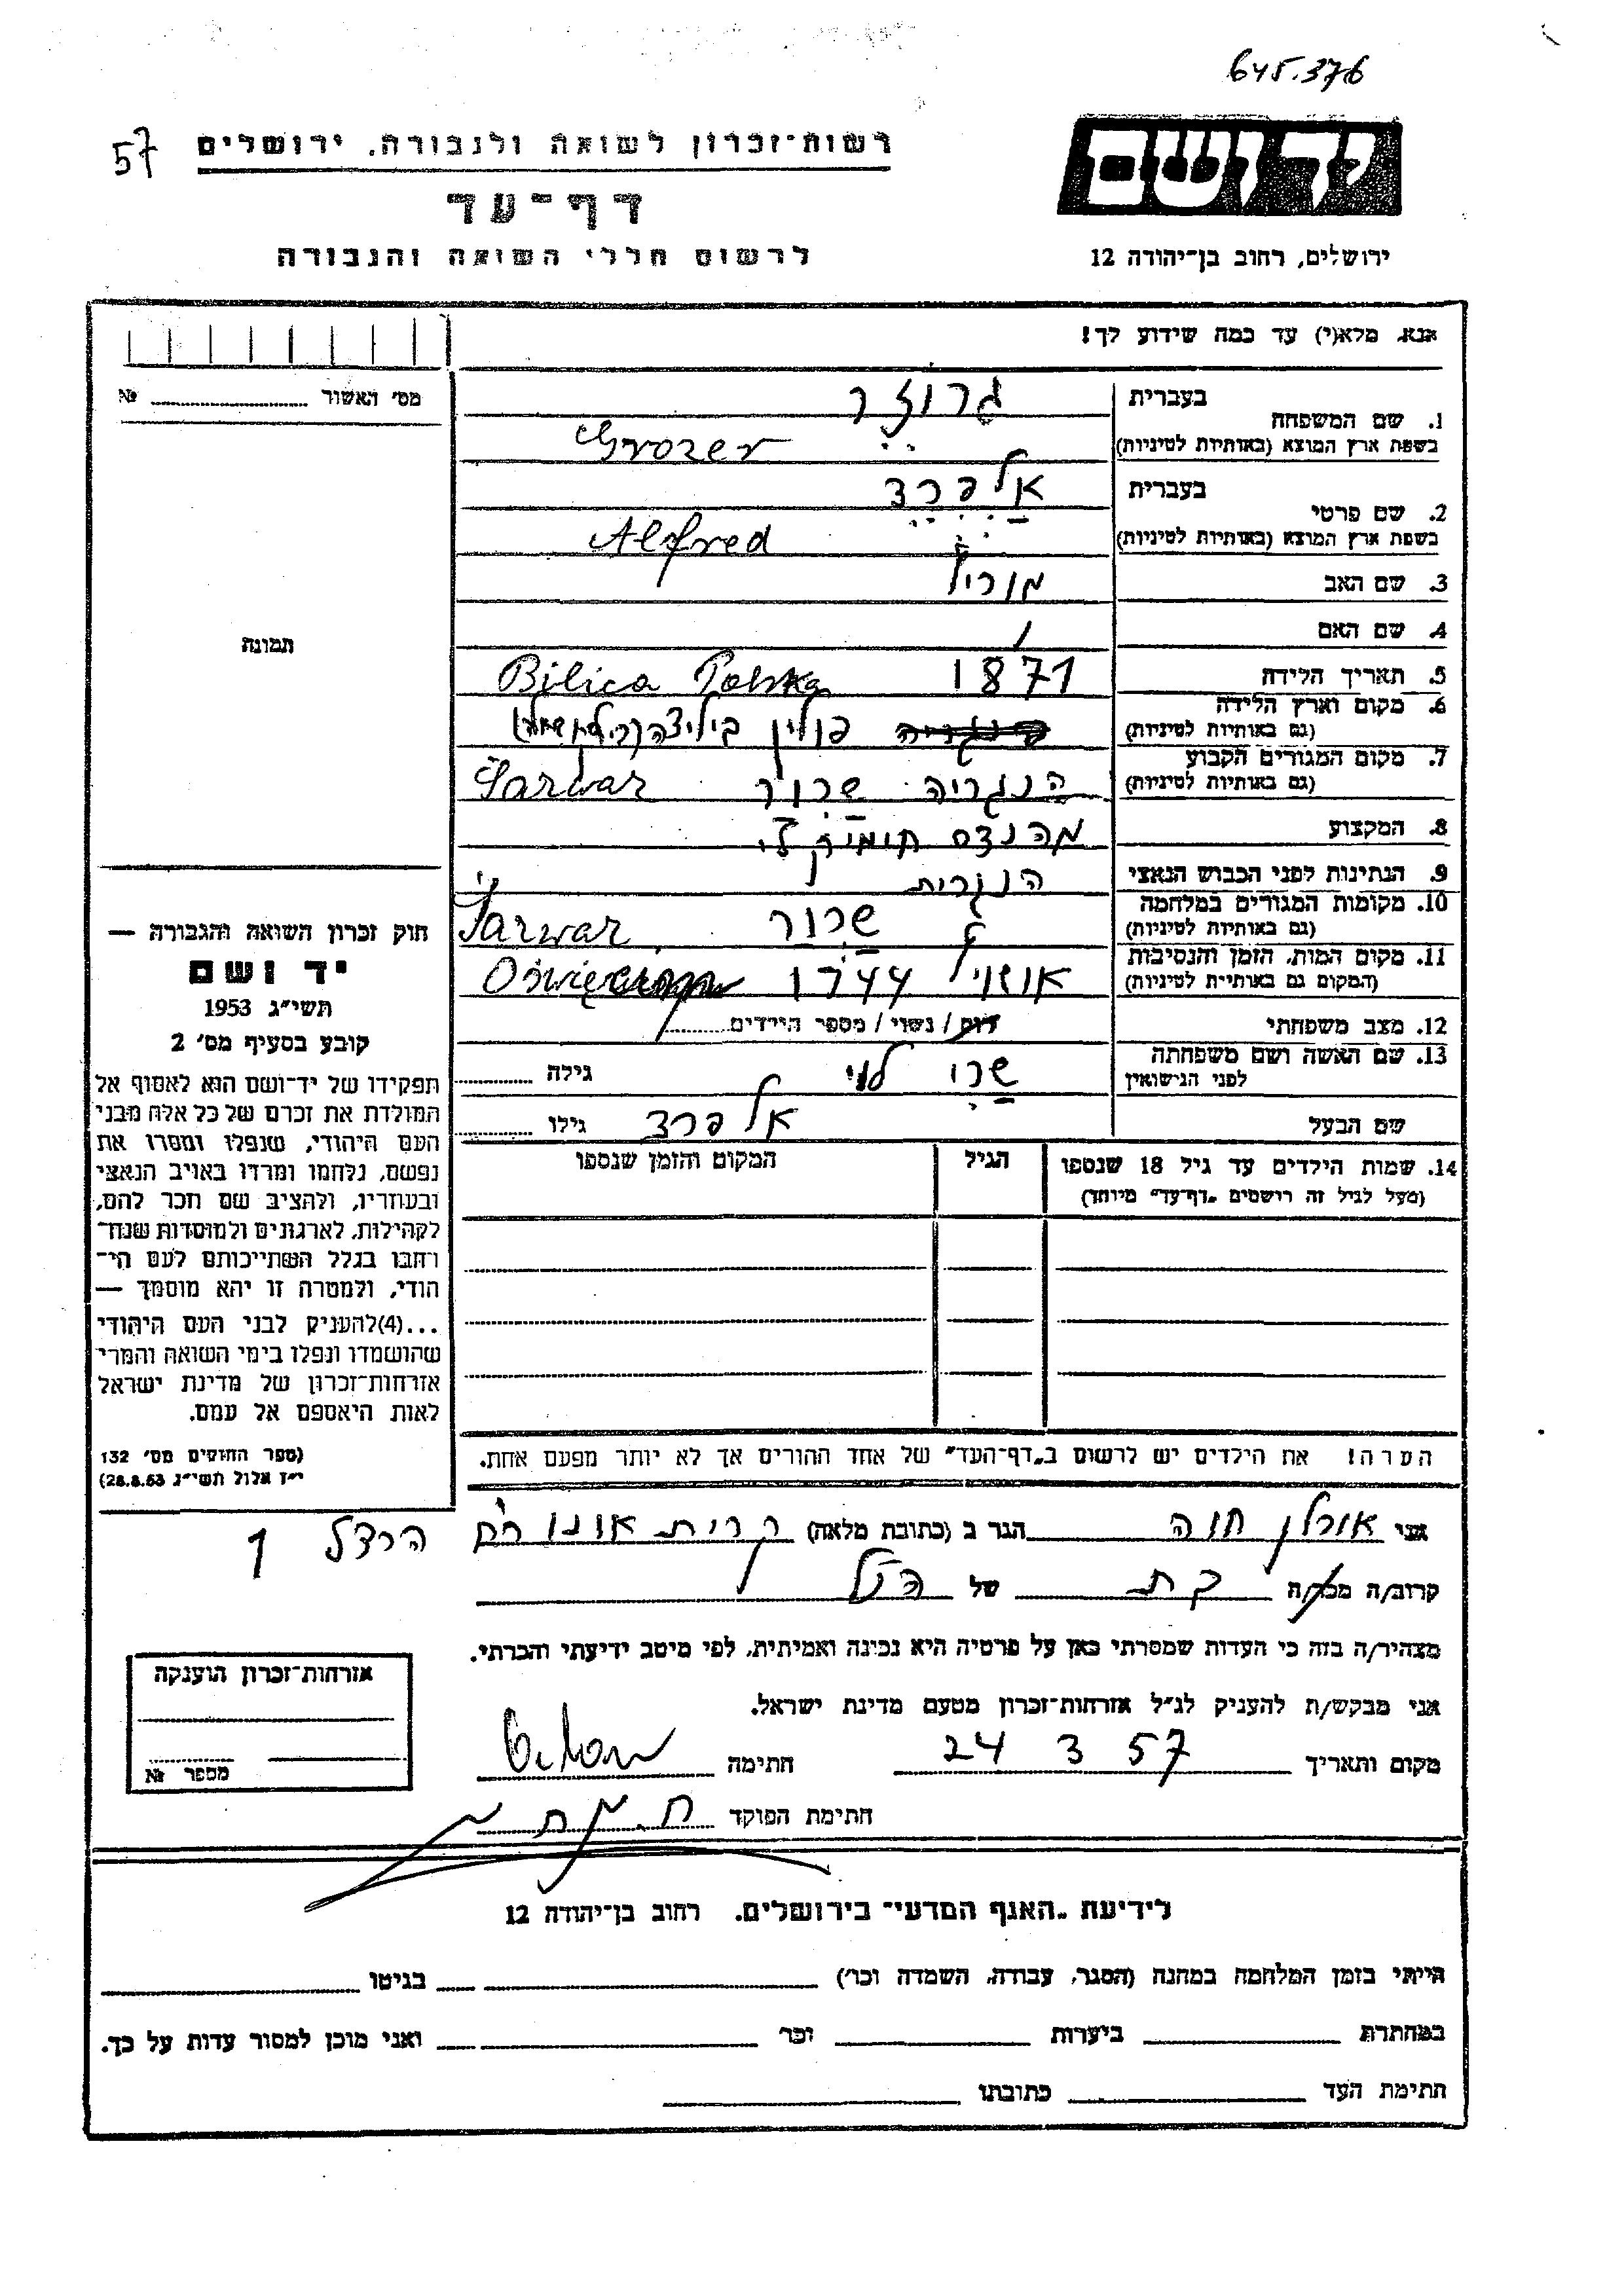 645.376
יד ושם
ירושלים, רחוב בן־יהודה 12
רשות־זכרון לשואה ולגבורה, ירושלים
57
דף־עד
לרשום חללי השואה והגבורה
אנא, מלא(י) עד כמה שידוע לך!
מס׳ האשור №
1. שם המשפחה
בעברית גרוזר
בשפת ארץ המוצא (באותיות לטיניות) Grozer
2. שם פרטי
בעברית אלפרד
בשפת ארץ המוצא (באותיות לטיניות) Alfred
3. שם האב מוריץ
4. שם האם /
5. תאריך הלידה 1871 Bilica Polska
6. מקום וארץ הלידה (גם באותיות לטיניות) פולין ביליצה
7. מקום המגורים הקבוע (גם באותיות לטיניות) הונגריה שרור Šarwar
8. המקצוע מהנדס
9. הנתינות לפני הכבוש הנאצי הונגרית
10. מקומות המגורים במלחמה (גם באותיות לטיניות) שרור Šarwar
11. מקום המות, הזמן והנסיבות (המקום גם באותיית לטיניות) 1944
12. מצב משפחתי רווק / נשוי / מספר הילדים
13. שם האשה ושם משפחתה לפני הנישואין שרי לוי גילה
שם הבעל אלפרד גילו
14. שמות הילדים עד גיל 18 שנספו
(מעל לגיל זה רישמים „דף־עד״ מיוחד)
הגיל
המקום והזמן שנספו
הערה! את הילדים יש לרשום ב„דף־העד״ של אחד ההורים אך לא יותר מפעם אחת.
תמונה
חוק זכרון השואה והגבורה —
יד ושם
תשי״ג 1953
קובע בסעיף מס׳ 2
תפקידו של יד־ושם הוא לאסוף אל
המולדת את זכרם של כל אלה מבני
העם היהודי, שנפלו ומסרו את
נפשם, נלחמו ומרדו באויב הנאצי
ובעוזריו, ולהציב שם וזכר להם,
לקהילות, לארגונים ולמוסדות שנח־
רחבו בגלל השתייכותם לעם הי־
הודי, ולמטרה זו יהא מוסמך —
...(4)להעניק לבני העם היהודי
שהושמדו ונפלו בימי השואה והמרי
אזרחות־זכרון של מדינת ישראל
לאות היאספם אל עמם.
(ספר החוקים מס׳ 132
י״ז אלול תשי״ג 28.8.53)
אני אורלן חוה הגר ב (כתובת מלאה) קרית אונו רח׳ הרצל 1
קרוב/ה מכר/ה בת של הנ״ל
מצהיר/ה בזה כי העדות שמסרתי כאן על פרטיה היא נכונה ואמיתית, לפי מיטב ידיעתי והכרתי.
אני מבקש/ת להעניק לנ״ל אזרחות־זכרון מטעם מדינת ישראל.
מקום ותאריך 24 3 57 חתימה
חתימת הפוקד
אזרחות־זכרון הוענקה
מספר №
לידיעת „האגף המדעי״ בירושלים, רחוב בן־יהודה 12
הייתי בזמן המלחמה במחנה (הסגר, עבודה, השמדה וכו׳) בגיטו
במחתרת ביערות וכו׳ ואני מוכן למסור עדות על כך.
חתימת העד כתובתו